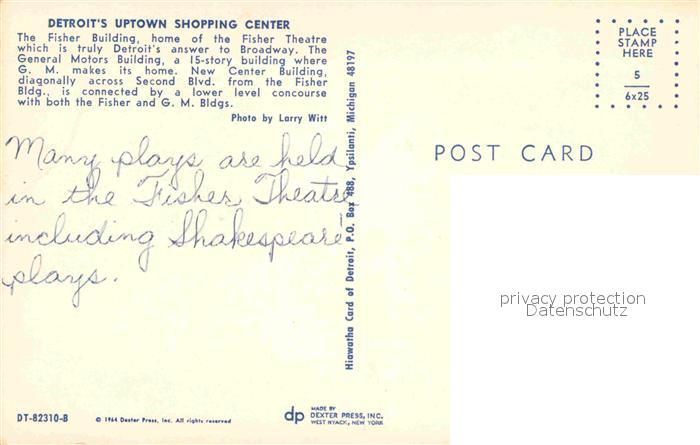 DETROIT'S UPTOWN SHOPPING CENTER
The Fisher Building, home of the Fisher Theatre
which is truly Detroit's answer to Broadway. The
General Motors Building, a 15-story building where
G. M. makes its home. New Center Building,
diagonally across Second Blvd. from the Fisher
Bldg., is connected by a lower level concourse
with both the Fisher and G. M. Bldgs.
Photo by Larry Witt
Many plays are held
in the Fisher Theatre,
including Shakespeare
plays.
Hiawatha Card of Detroit, P.O. Box 488, Ypsilanti, Michigan 48197
PLACE
STAMP
HERE
5
6x25
POST CARD
privacy protection
Datenschutz
DT-82310-B
© 1964 Dexter Press, Inc. All rights reserved
dp
MADE BY
DEXTER PRESS, INC.
WEST NYACK, NEW YORK